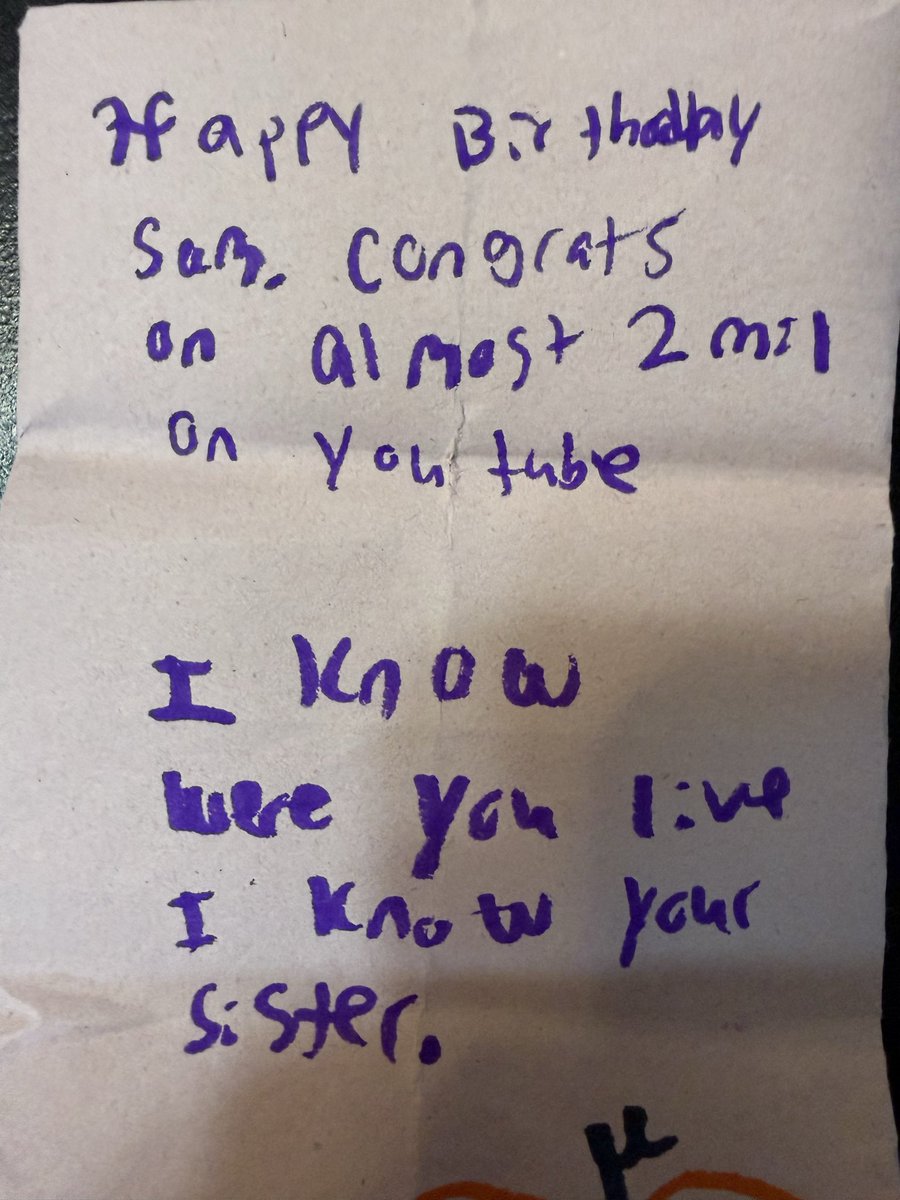 Happy Birthday
Sam. Congrats
on almost 2 mil
on youtube
I know
were you live
I know your
sister.